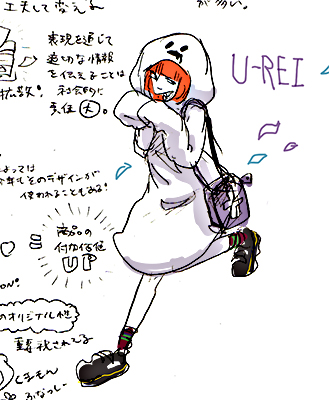 工夫して変える
が多い。
表現を通じて
適切な情報
を伝えることは
社会的に
責任大。
拡散!
U-REI
よっては
そのデザインが
使われることもある!
商品の
付加価値
UP
=
ON!
のオリジナル性
重視されてる
くまモン
ふなっしー